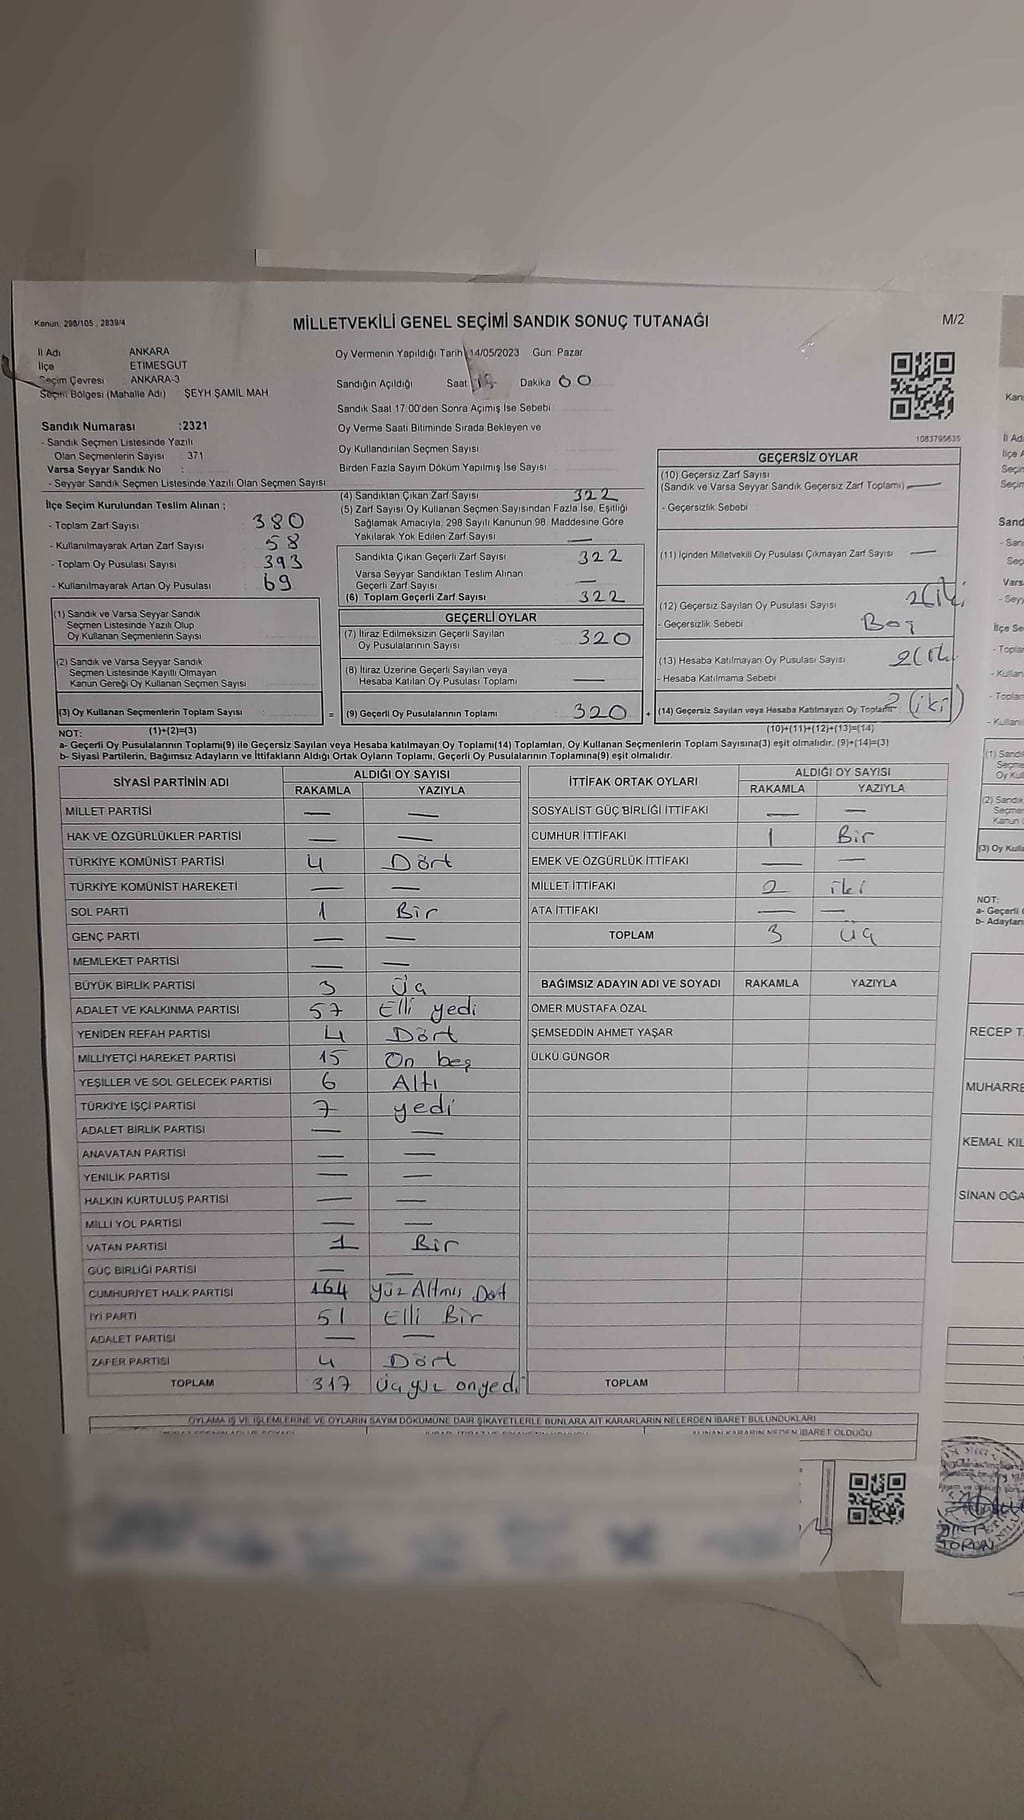 Kanun, 298/105 , 2839/4
MİLLETVEKİLİ GENEL SEÇİMİ SANDIK SONUÇ TUTANAĞI
M/2
İl Adı ANKARA
İlçe ETİMESGUT
Seçim Çevresi ANKARA-3
Seçim Bölgesi (Mahalle Adı) ŞEYH ŞAMİL MAH
Oy Vermenin Yapıldığı Tarih 14/05/2023 Gün: Pazar
Sandığın Açıldığı Saat Dakika 00
Sandık Saat 17:00'den Sonra Açımış İse Sebebi
Oy Verme Saati Bitiminde Sırada Bekleyen ve
Oy Kullandırılan Seçmen Sayısı
Birden Fazla Sayım Döküm Yapılmış İse Sayısı
1083795635
Sandık Numarası :2321
- Sandık Seçmen Listesinde Yazılı
Olan Seçmenlerin Sayısı 371
Varsa Seyyar Sandık No :
- Seyyar Sandık Seçmen Listesinde Yazılı Olan Seçmen Sayısı
İlçe Seçim Kurulundan Teslim Alınan ;
- Toplam Zarf Sayısı 380
- Kullanılmayarak Artan Zarf Sayısı 58
- Toplam Oy Pusulası Sayısı 393
- Kullanılmayarak Artan Oy Pusulası 69
(1) Sandık ve Varsa Seyyar Sandık
Seçmen Listesinde Yazılı Olup
Oy Kullanan Seçmenlerin Sayısı
(2) Sandık ve Varsa Seyyar Sandık
Seçmen Listesinde Kayıtlı Olmayan
Kanun Gereği Oy Kullanan Seçmen Sayısı
(3) Oy Kullanan Seçmenlerin Toplam Sayısı =
(4) Sandıktan Çıkan Zarf Sayısı 322
(5) Zarf Sayısı Oy Kullanan Seçmen Sayısından Fazla İse, Eşitliği
Sağlamak Amacıyla, 298 Sayılı Kanunun 98. Maddesine Göre
Yakılarak Yok Edilen Zarf Sayısı —
Sandıkta Çıkan Geçerli Zarf Sayısı 322
Varsa Seyyar Sandıktan Teslim Alınan
Geçerli Zarf Sayısı —
(6) Toplam Geçerli Zarf Sayısı 322
GEÇERLİ OYLAR
(7) İtiraz Edilmeksizin Geçerli Sayılan
Oy Pusulalarının Sayısı 320
(8) İtiraz Üzerine Geçerli Sayılan veya
Hesaba Katılan Oy Pusulası Toplamı —
(9) Geçerli Oy Pusulalarının Toplamı 320 +
GEÇERSİZ OYLAR
(10) Geçersiz Zarf Sayısı
(Sandık ve Varsa Seyyar Sandık Geçersiz Zarf Toplamı) —
- Geçersizlik Sebebi
(11) İçinden Milletvekili Oy Pusulası Çıkmayan Zarf Sayısı —
(12) Geçersiz Sayılan Oy Pusulası Sayısı 2(iki
- Geçersizlik Sebebi Boş
(13) Hesaba Katılmayan Oy Pusulası Sayısı
- Hesaba Katılmama Sebebi
(14) Geçersiz Sayılan veya Hesaba Katılmayan Oy Toplamı 2 (iki)
NOT: (1)+(2)=(3)
(10)+(11)+(12)+(13)=(14)
a- Geçerli Oy Pusulalarının Toplamı(9) ile Geçersiz Sayılan veya Hesaba katılmayan Oy Toplamı(14) Toplamları, Oy Kullanan Seçmenlerin Toplam Sayısına(3) eşit olmalıdır. (9)+(14)=(3)
b- Siyasi Partilerin, Bağımsız Adayların ve İttifakların Aldığı Ortak Oyların Toplamı, Geçerli Oy Pusulalarının Toplamına(9) eşit olmalıdır.
SİYASİ PARTİNİN ADI ALDIĞI OY SAYISI
RAKAMLA YAZIYLA
MİLLET PARTİSİ — —
HAK VE ÖZGÜRLÜKLER PARTİSİ — —
TÜRKİYE KOMÜNİST PARTİSİ 4 Dört
TÜRKİYE KOMÜNİST HAREKETİ — —
SOL PARTİ 1 Bir
GENÇ PARTİ — —
MEMLEKET PARTİSİ — —
BÜYÜK BİRLİK PARTİSİ 3 Üç
ADALET VE KALKINMA PARTİSİ 57 Elli yedi
YENİDEN REFAH PARTİSİ 4 Dört
MİLLİYETÇİ HAREKET PARTİSİ 15 On beş
YEŞİLLER VE SOL GELECEK PARTİSİ 6 Altı
TÜRKİYE İŞÇİ PARTİSİ 7 yedi
ADALET BİRLİK PARTİSİ — —
ANAVATAN PARTİSİ — —
YENİLİK PARTİSİ — —
HALKIN KURTULUŞ PARTİSİ — —
MİLLİ YOL PARTİSİ — —
VATAN PARTİSİ 1 Bir
GÜÇ BİRLİĞİ PARTİSİ — —
CUMHURİYET HALK PARTİSİ 164 yüz Altmış Dört
İYİ PARTİ 51 Elli Bir
ADALET PARTİSİ — —
ZAFER PARTİSİ 4 Dört
TOPLAM 317 üçyüz onyedi
İTTİFAK ORTAK OYLARI ALDIĞI OY SAYISI
RAKAMLA YAZIYLA
SOSYALİST GÜÇ BİRLİĞİ İTTİFAKI — —
CUMHUR İTTİFAKI 1 Bir
EMEK VE ÖZGÜRLÜK İTTİFAKI — —
MİLLET İTTİFAKI 2 iki
ATA İTTİFAKI — —
TOPLAM 3 üç
BAĞIMSIZ ADAYIN ADI VE SOYADI RAKAMLA YAZIYLA
ÖMER MUSTAFA ÖZAL
ŞEMSEDDİN AHMET YAŞAR
ÜLKÜ GÜNGÖR
TOPLAM
OYLAMA İŞ VE İŞLEMLERİNE VE OYLARIN SAYIM DÖKÜMÜNE DAİR ŞİKAYETLERLE BUNLARA AİT KARARLARIN NELERDEN İBARET BULUNDUKLARI
ALINAN KARARIN NEDEN İBARET OLDUĞU
NOT:
a- Geçerli
b- Adayların
RECEP T
MUHARRE
KEMAL KIL
SİNAN OĞA